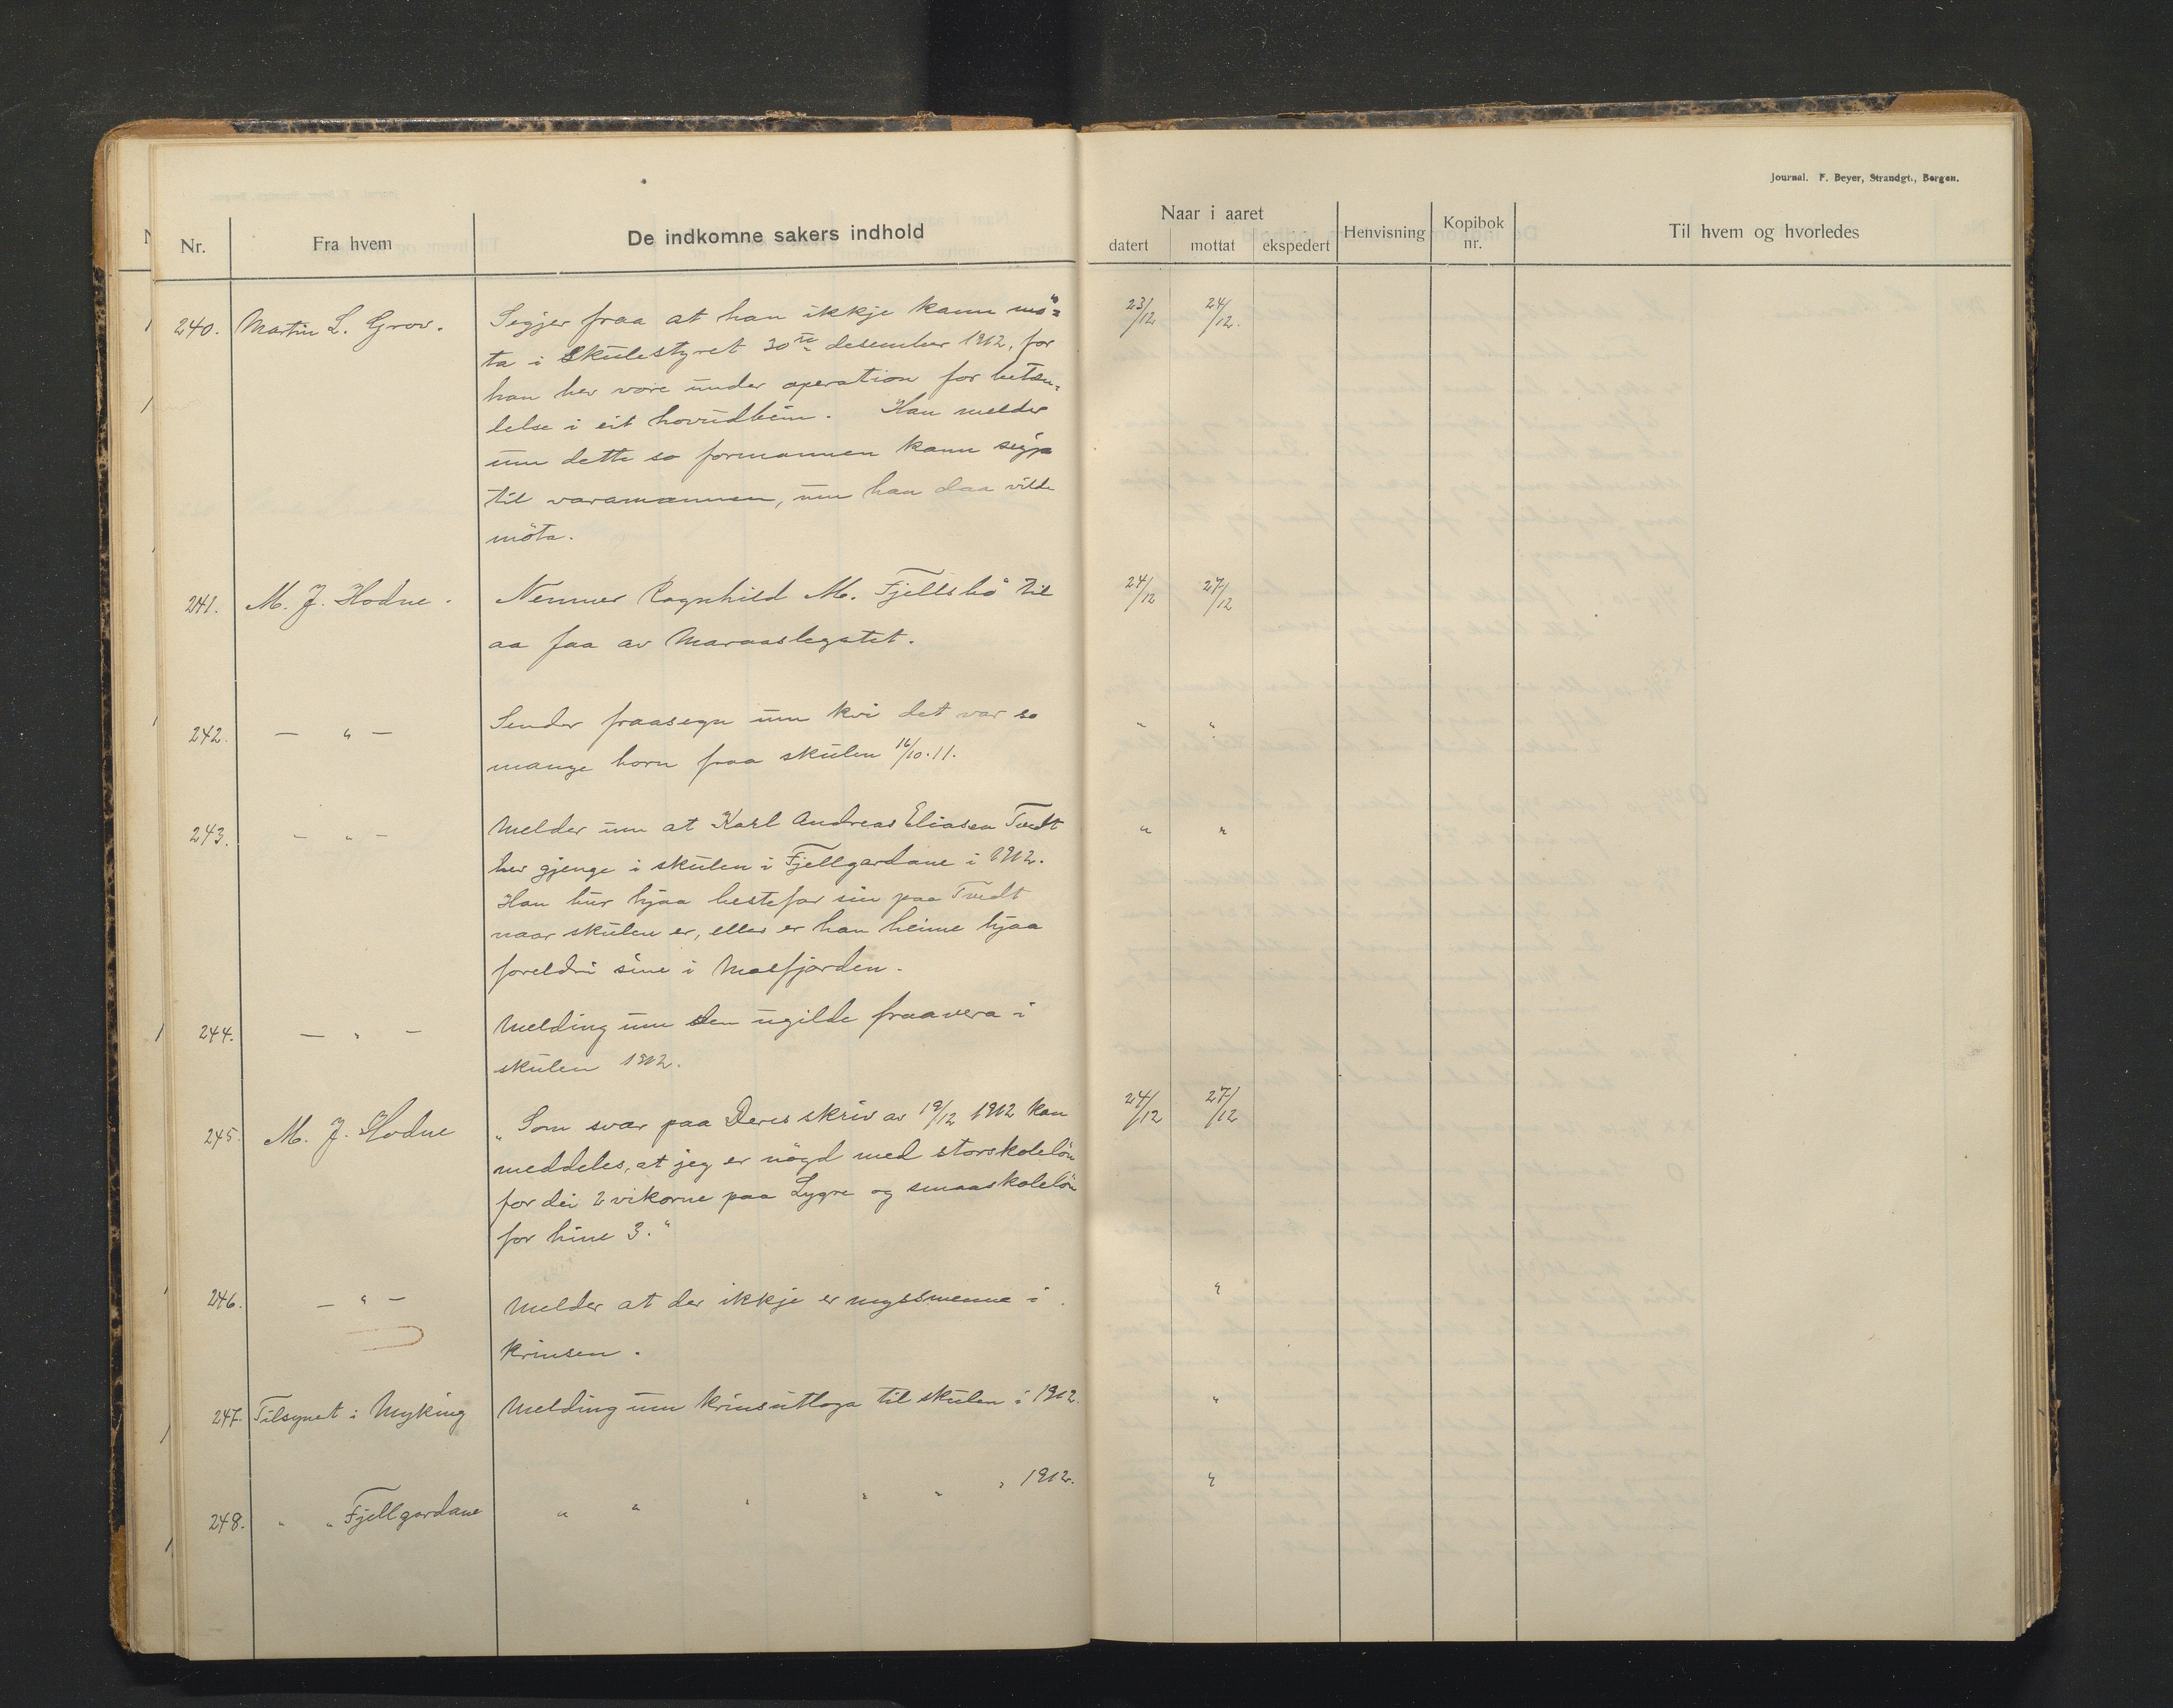 Journal. F. Beyer, Strandgt., Bergen.
Nr. Fra hvem De indkomne sakers indhold Naar i aaret datert mottat ekspedert Henvisning Kopibok nr. Til hvem og hvorledes
240. Martin L. Grov. Segjer fraa at han ikkje kann mö= 23/12 24/12.
ta i Skulestyret 30te desember 1912, for
han hev vore under operation for beten=
delse i eit hovudbein. Han melder
um dette so formannen kann segja
til varamannen, um han daa vilde
möta.
241. M. J. Hodne. Nemner Ragnhild M. Fjellsbö til 24/12 27/12
aa faa av Maraaslegatet.
242. — " — Sender fraasegn um kvi det var so " "
mange born fraa skulen 16/10.11.
243. — " — Melder um at Karl Andreas Eliasen Tvedt " "
hev gjenge i skulen i Fjellgardane i 1912.
Han bur hjaa bestefar sin paa Tvedt
naar skulen er, elles er han heime hjaa
foreldri sine i Masfjorden.
244. — " — Melding um den ugilde fraavera i
skulen 1912.
245. M. J. Hodne "Som svar paa Deres skriv av 19/12 1912 kan 24/12 27/12
meddeles, at jeg er nögd med storskolelön
for dei 2 vikorne paa Lygre og smaaskolelön
for hine 3."
246. — " — Melder at der ikkje er nyssmenne i "
krinsen.
247. Tilsynet i Myking Melding um krinsutloga til skulen i 1912. "
248. " " Fjellgardane " " " " " " 1912. "